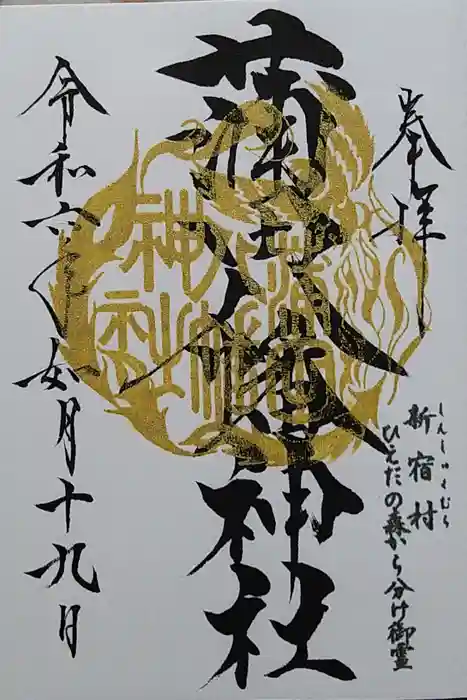 奉拝
新宿村
しんしゅくむら
ひえだの森から分け御霊
蒲田八幡神社
蒲田八幡神社
令和六年如月十九日